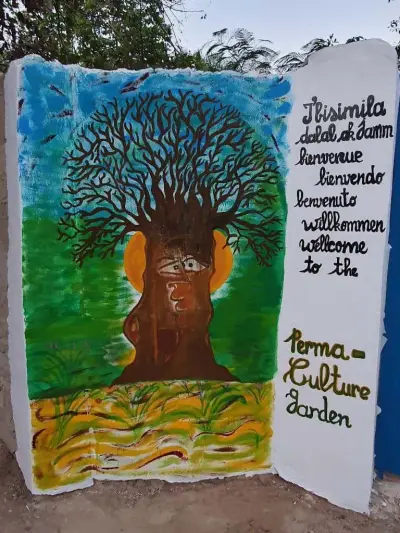 Ibisimila
dalal ak Jamm
bienvenue
bienvendo
benvenuto
willkommen
wellcome
to the
Perma-
Culture
Garden